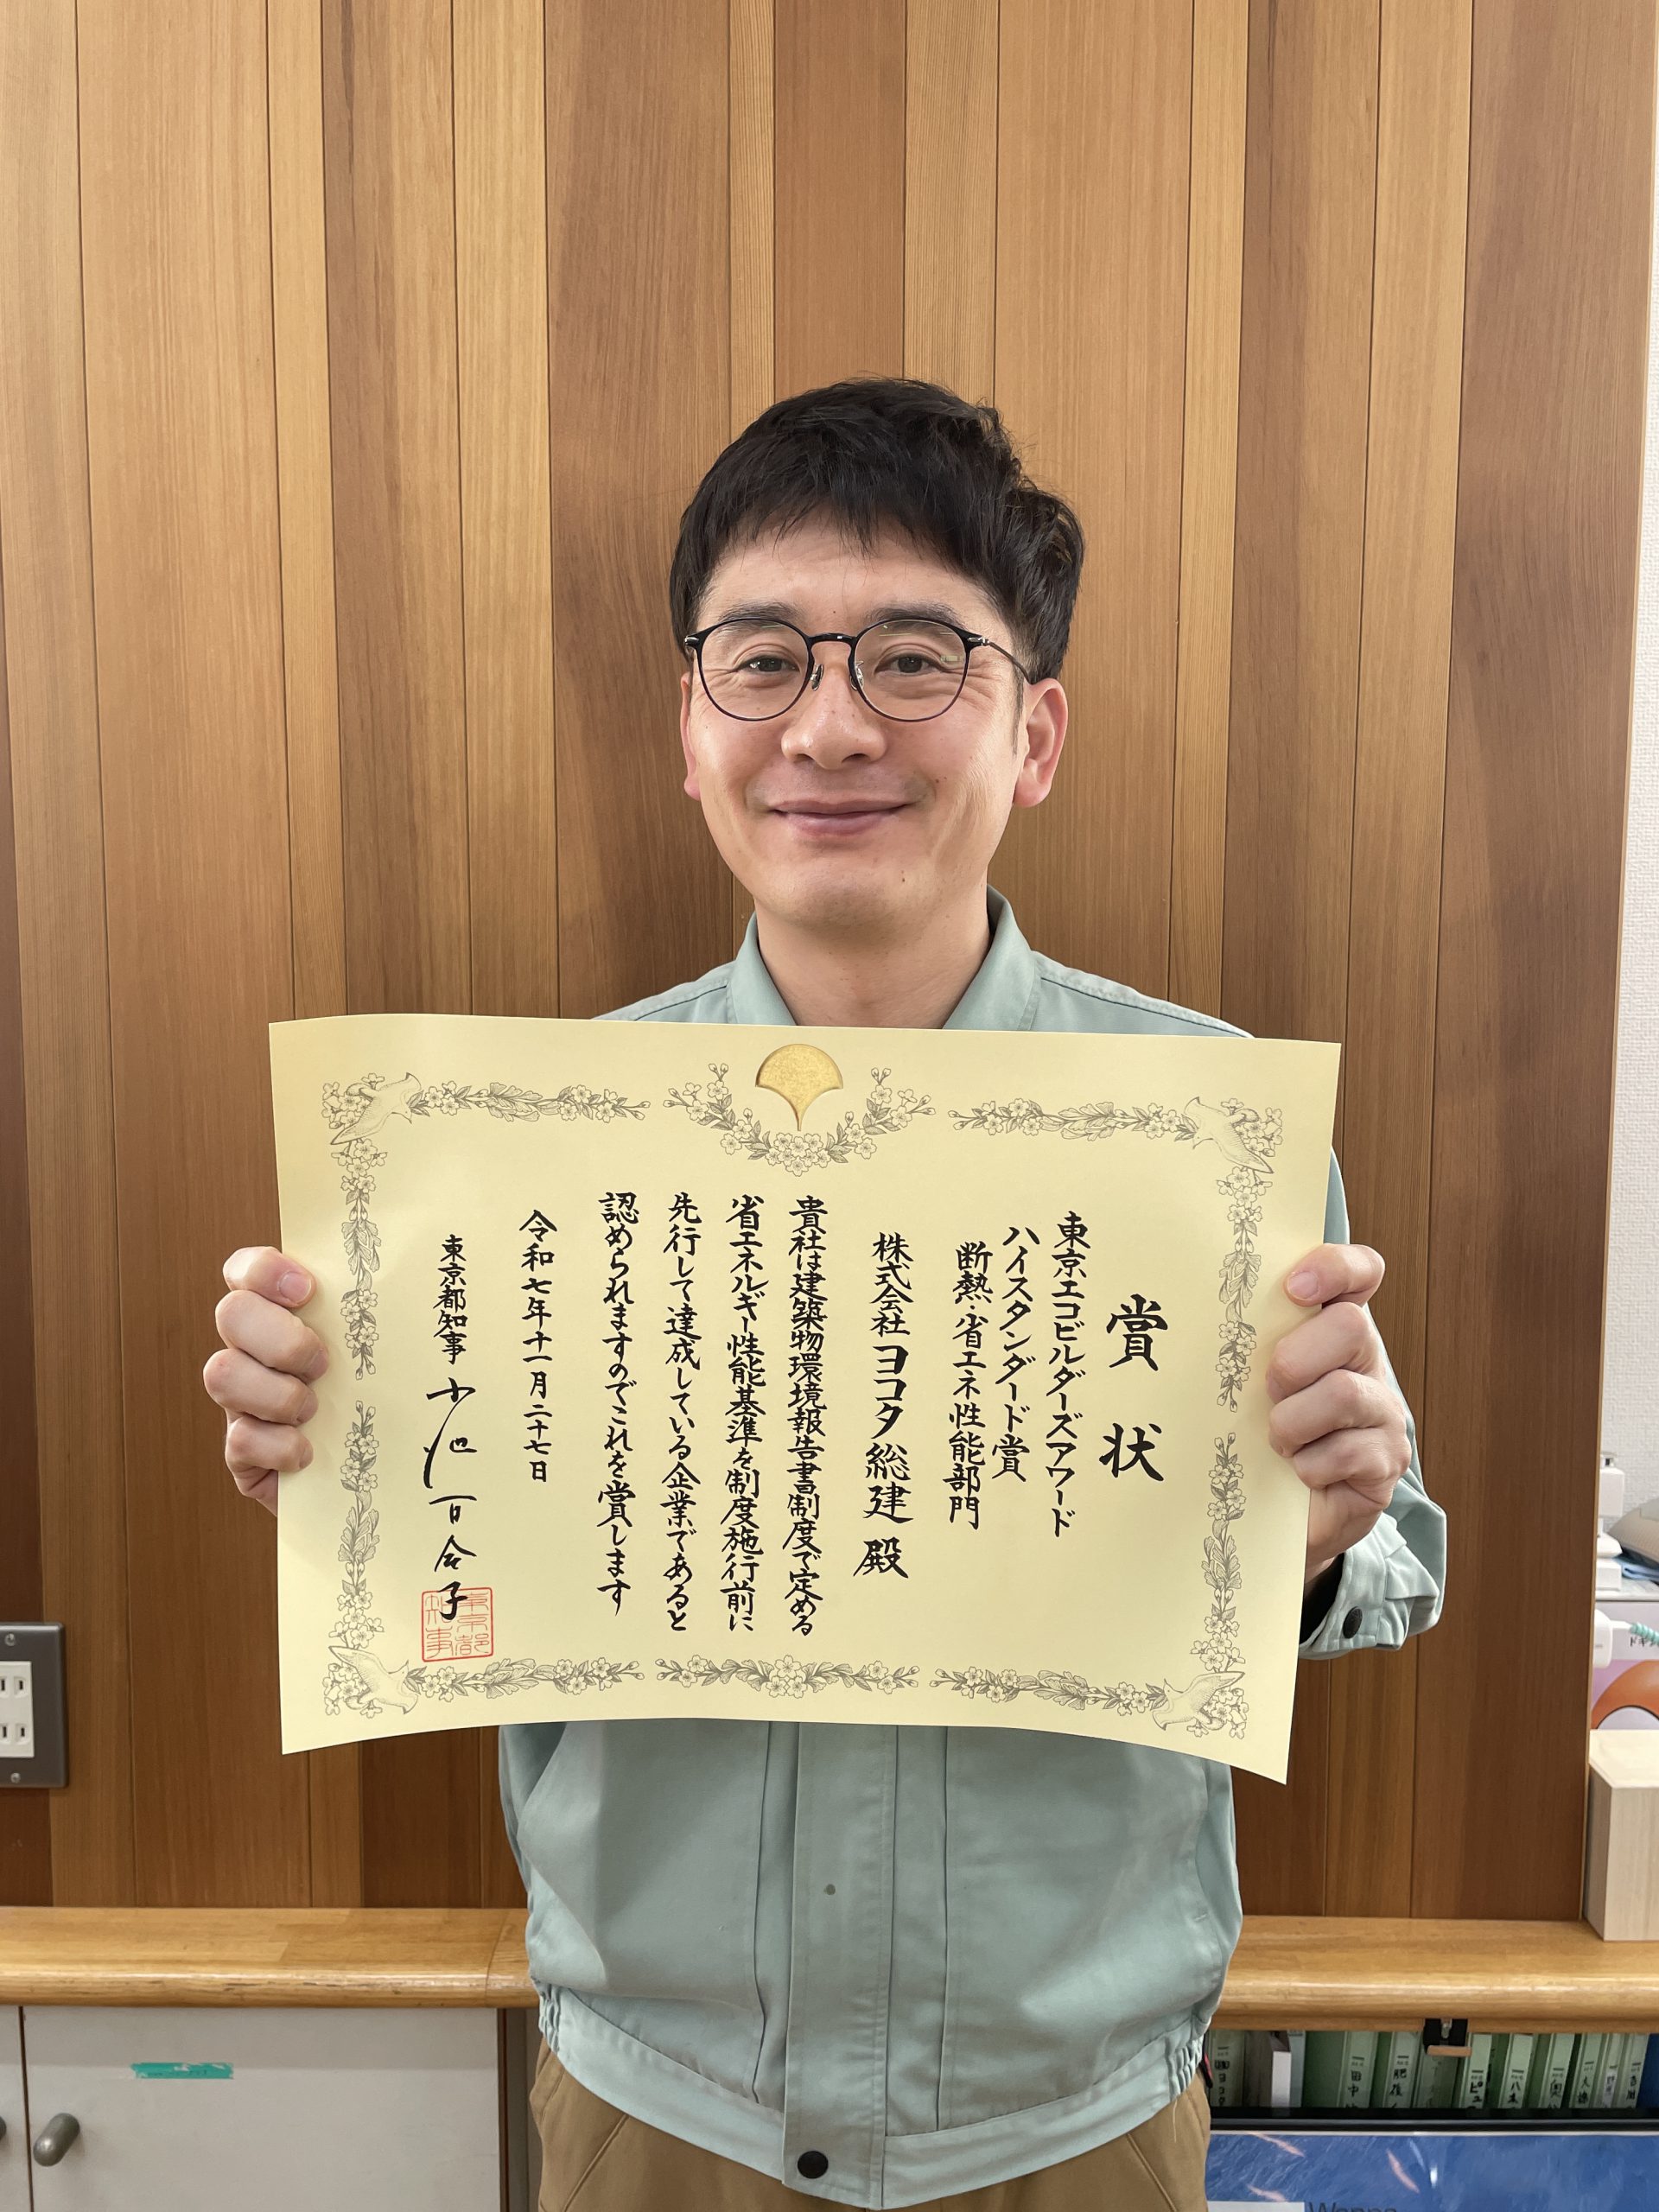 賞状
東京エコビルダーズアワード
ハイスタンダード賞
断熱・省エネ性能部門
株式会社ヨコタ総建 殿
貴社は建築物環境報告書制度で定める
省エネルギー性能基準を制度施行前に
先行して達成している企業であると
認められますのでこれを賞します
令和七年十一月二十七日
東京都知事 小池百合子
東京都
知事
田中
肥後
ピュ